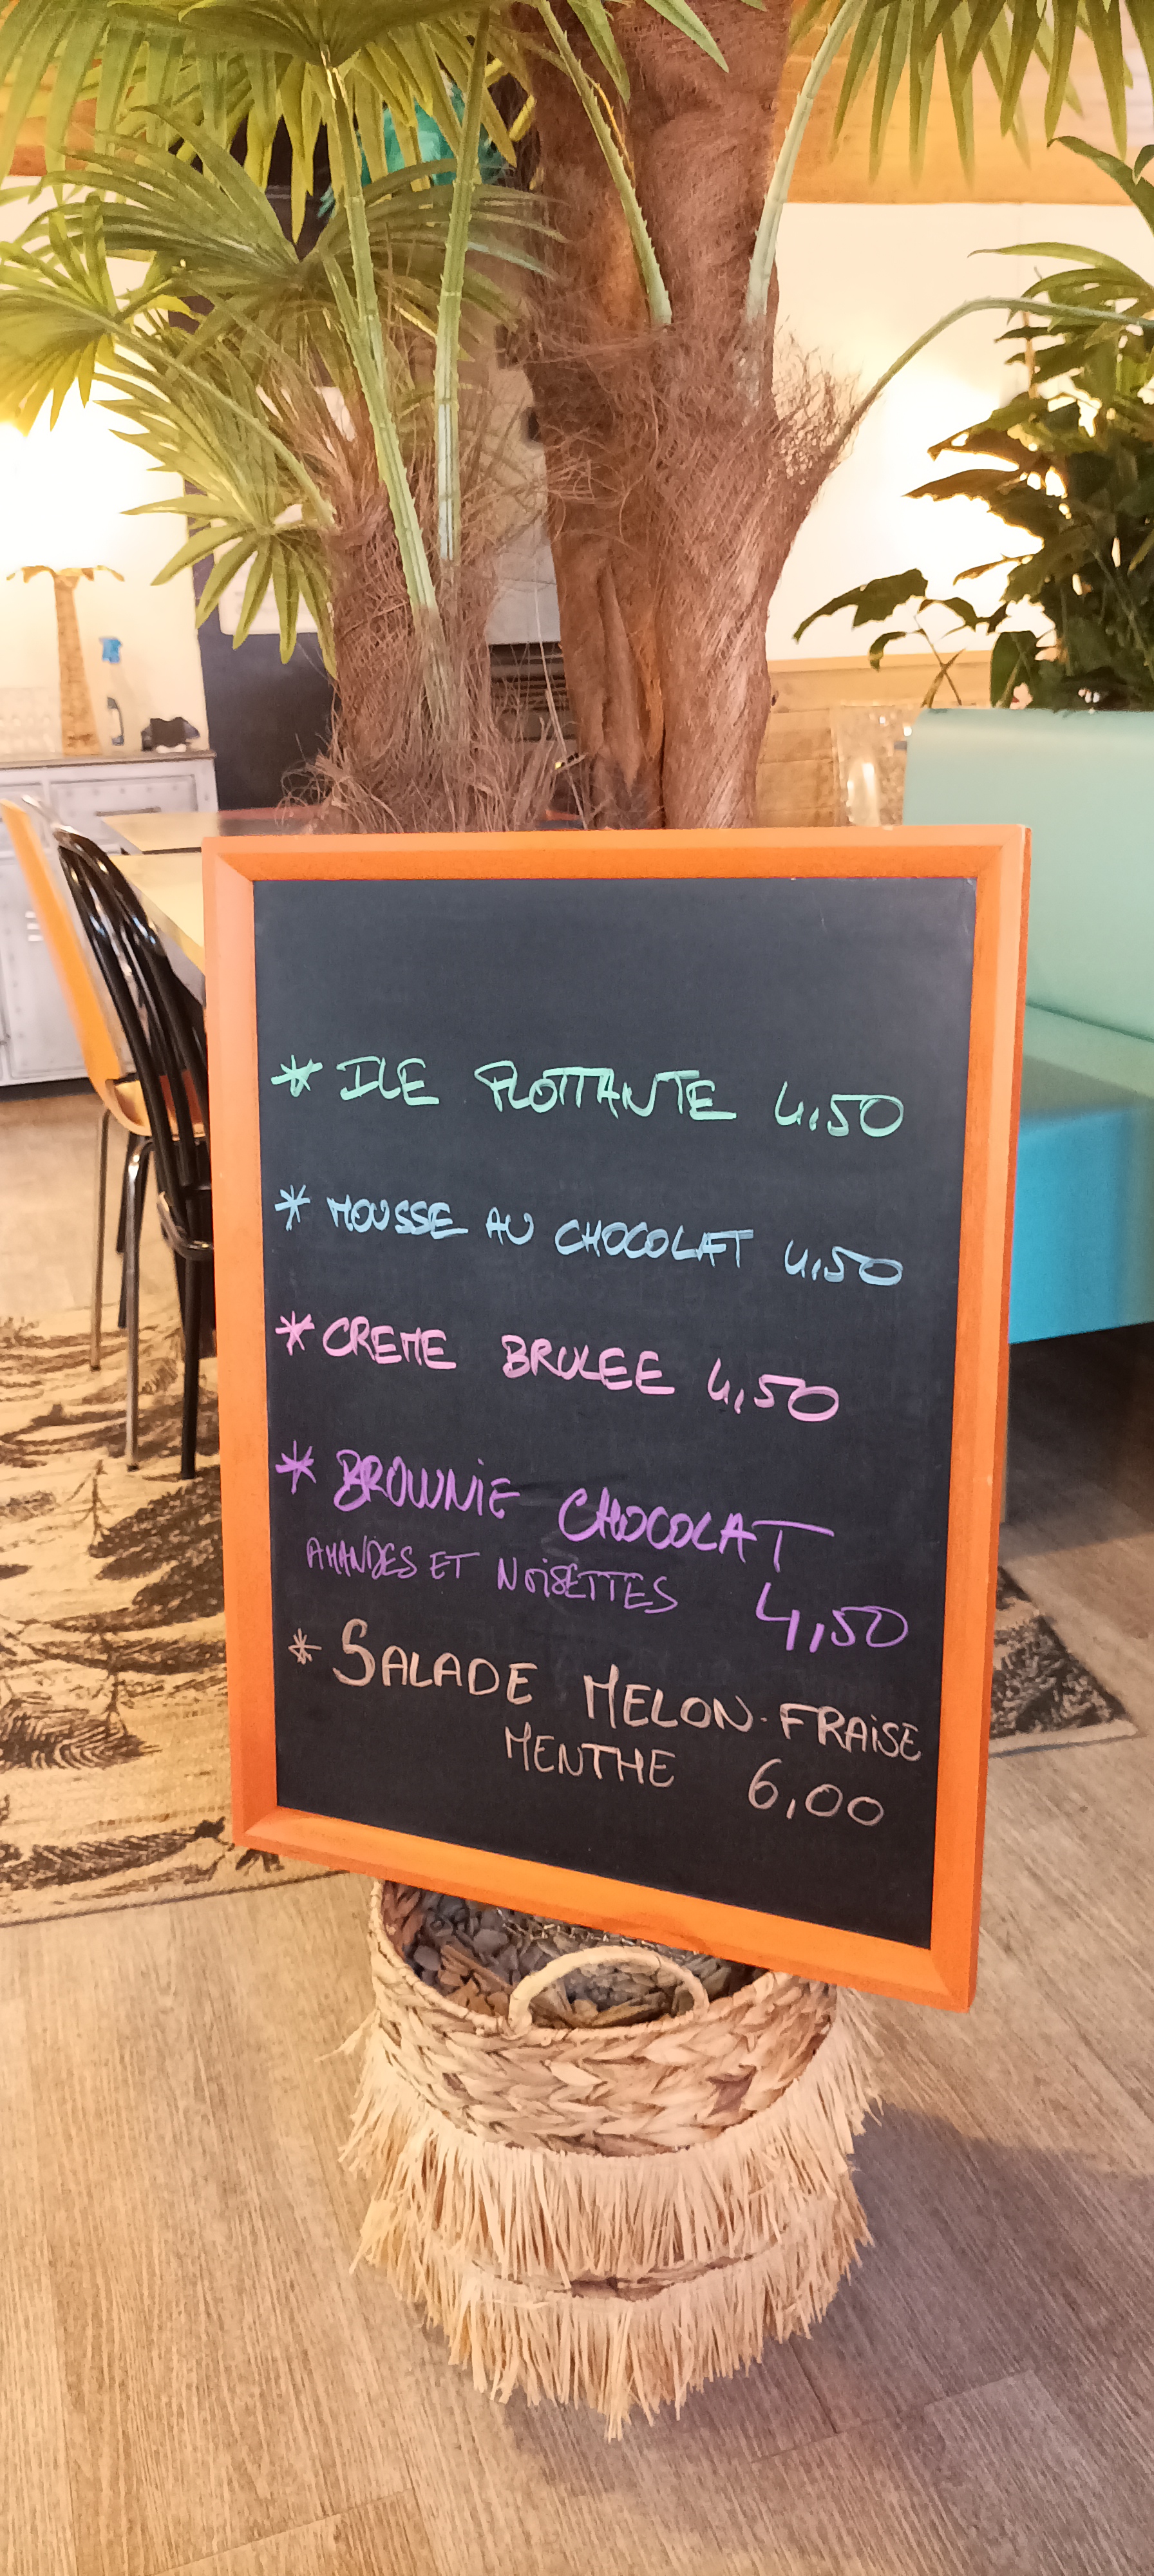 * ILE FLOTTANTE 4,50
* MOUSSE AU CHOCOLAT 4,50
* CREME BRULEE 4,50
* BROWNIE CHOCOLAT
AMANDES ET NOISETTES 4,50
* SALADE MELON-FRAISE
MENTHE 6,00